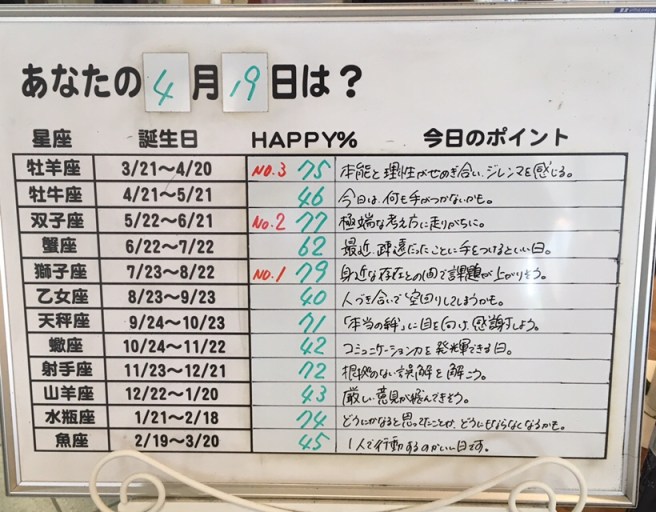 あなたの4月19日は？
星座 誕生日 HAPPY% 今日のポイント
牡羊座 3/21～4/20 NO.3 75 本能と理性がせめぎ合い、ジレンマを感じる。
牡牛座 4/21～5/21 46 今日は、何も手がつかないかも。
双子座 5/22～6/21 No.2 77 極端な考え方に走りがちに。
蟹座 6/22～7/22 62 最近、疎遠だったことに手をつけるといい日。
獅子座 7/23～8/22 NO.1 79 身近な存在との間で課題が上がりそう。
乙女座 8/23～9/23 40 人づき合いで空回りしてしまうかも。
天秤座 9/24～10/23 71 「本当の絆」に目を向け、感謝しよう。
蠍座 10/24～11/22 42 コミュニケーション力を発揮できる日。
射手座 11/23～12/21 72 根拠のない誤解を解こう。
山羊座 12/22～1/20 43 厳しい意見が飛んできそう。
水瓶座 1/21～2/18 74 どうにかなると思ってたことが、どうにもならなくなるかも。
魚座 2/19～3/20 45 1人で行動するのがいい日です。